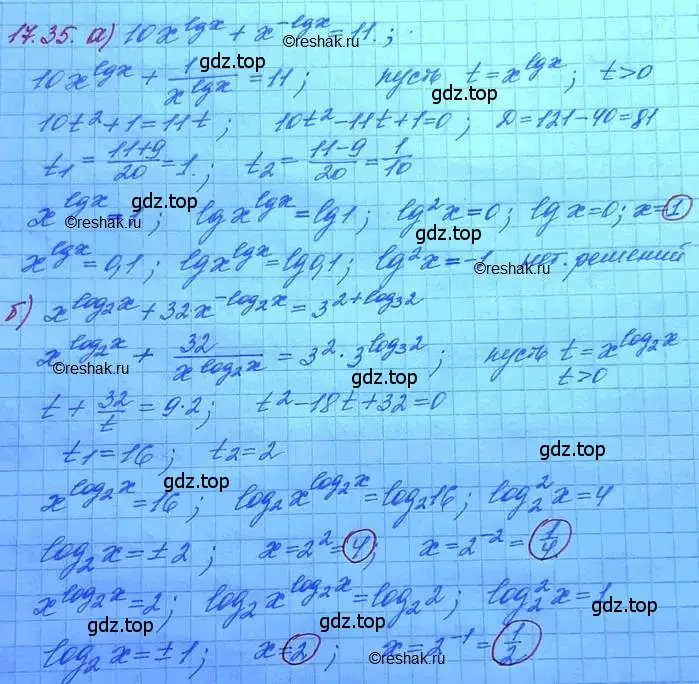 17.35. а) 10x^{lgx} + x^{-lgx} = 11.;
©reshak.ru
gdz.top
10x^{lgx} + 1/x^{lgx} = 11; пусть t = x^{lgx}; t>0
gdz.top
©reshak.ru
10t² + 1 = 11t; 10t² - 11t + 1 = 0; D = 121 - 40 = 81
t₁ = (11+9)/20 = 1.; t₂ = (11-9)/20 = 1/10
gdz.top gdz.top
x^{lgx} = 1; lgx^{lgx} = lg1; lg²x = 0; lgx = 0; x = 1
©reshak.ru
x^{lgx} = 0,1; lgx^{lgx} = lg0,1; lg²x = -1 нет. решений
gdz.top ©reshak.ru
б) x^{log₂x} + 32·x^{-log₂x} = 3^{2+log₃2}
x^{log₂x} + 32/x^{log₂x} = 3²·3^{log₃2}; пусть t = x^{log₂x}
©reshak.ru
gdz.top
t>0
t + 32/t = 9·2; t² - 18t + 32 = 0
gdz.top
t₁ = 16; t₂ = 2
gdz.top gdz.top
x^{log₂x} = 16; log₂x^{log₂x} = log₂16; log₂²x = 4
log₂x = ±2; x = 2² = 4; x = 2^{-2} = 1/4
gdz.top
x^{log₂x} = 2; log₂x^{log₂x} = log₂2; log₂²x = 1
gdz.top gdz.top
log₂x = ±1; x = 2; x = 2^{-1} = 1/2
©reshak.ru